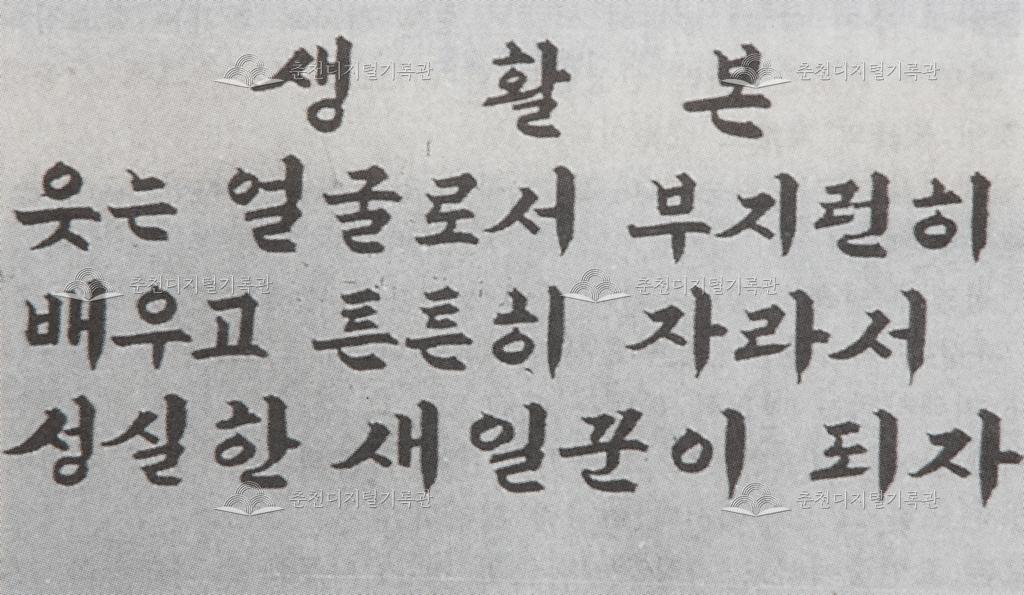 생활본
웃는 얼굴로서 부지런히
배우고 튼튼히 자라서
성실한 새일꾼이 되자
춘천디지털기록관
춘천디지털기록관
춘천디지털기록관
춘천디지털기록관
춘천디지털기록관
춘천디지털기록관